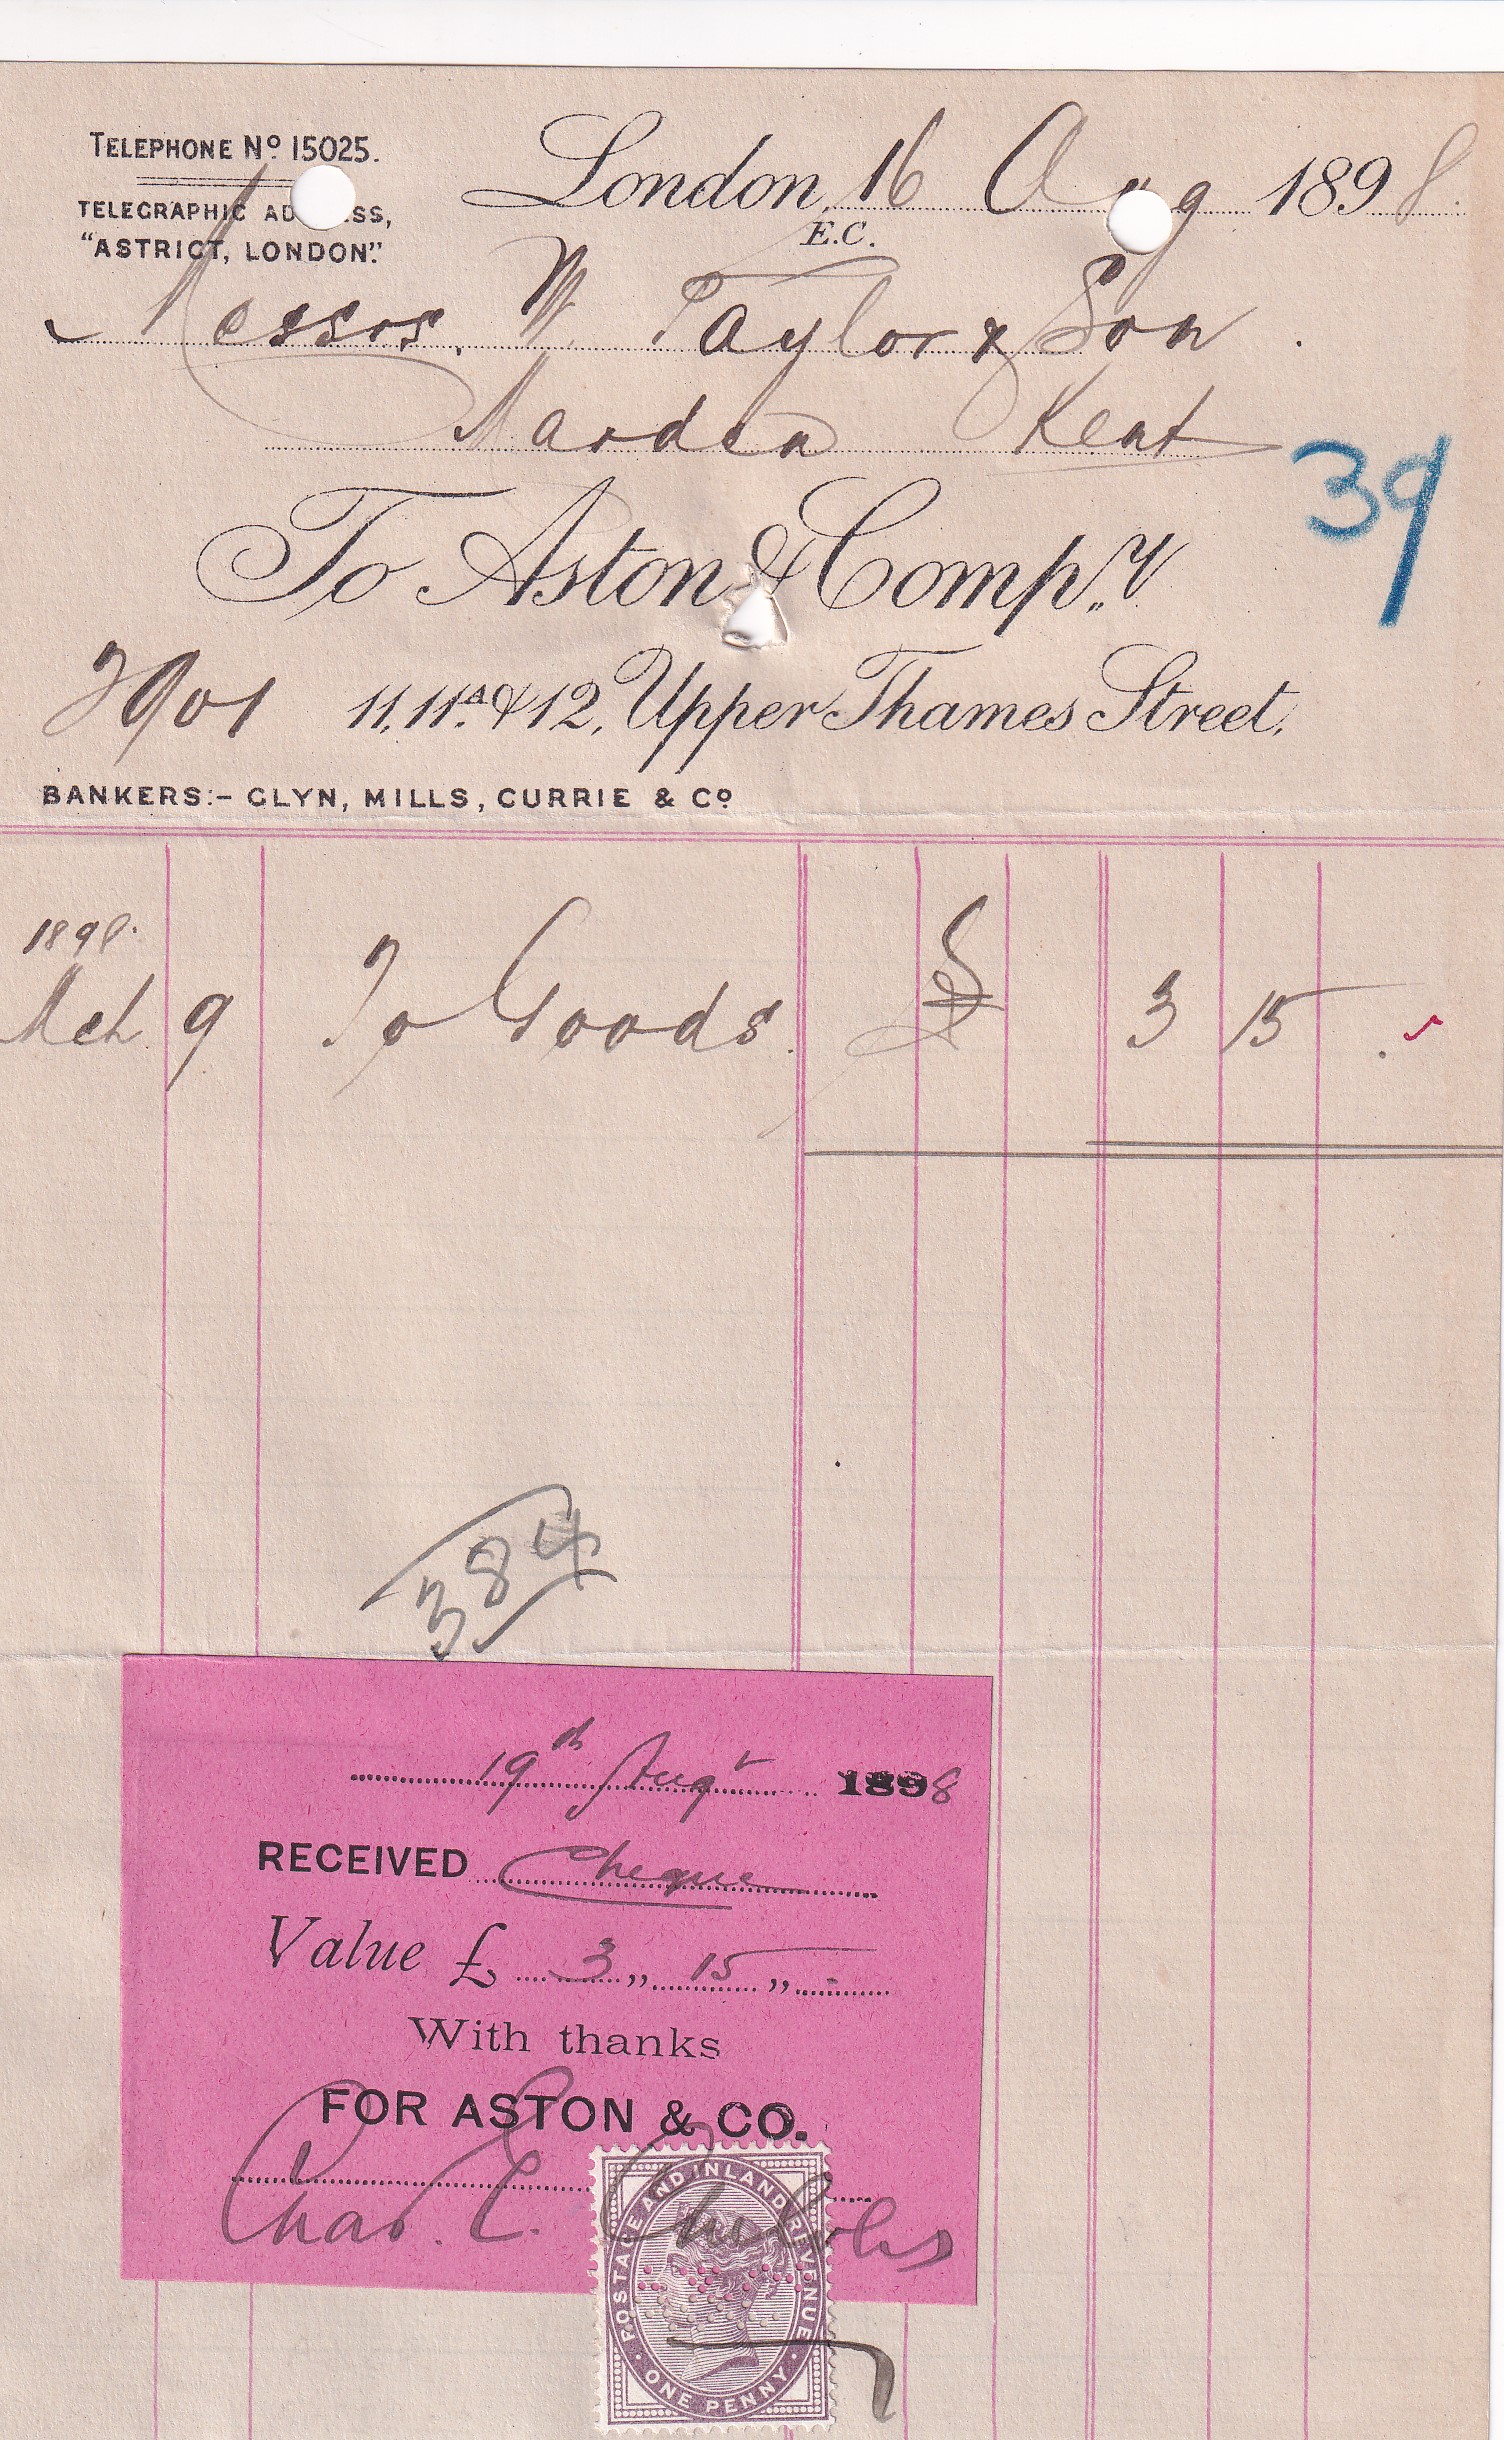 TELEPHONE Nº 15025.
TELEGRAPHIC AD SS,
"ASTRICT, LONDON".
London, 16 Aug 1898.
E.C.
Messrs. W. Taylor & Son
Marden Kent
39
To Aston & Compy.
11, 11A & 12, Upper Thames Street,
BANKERS:- GLYN, MILLS, CURRIE & Cº
1898.
Mch 9 To Goods. £ 3 15 -
384
19th Augt 1898
RECEIVED Cheque
Value £ 3 " 15 " -
With thanks
FOR ASTON & CO.
Chas. E.
POSTAGE AND INLAND REVENUE
ONE PENNY